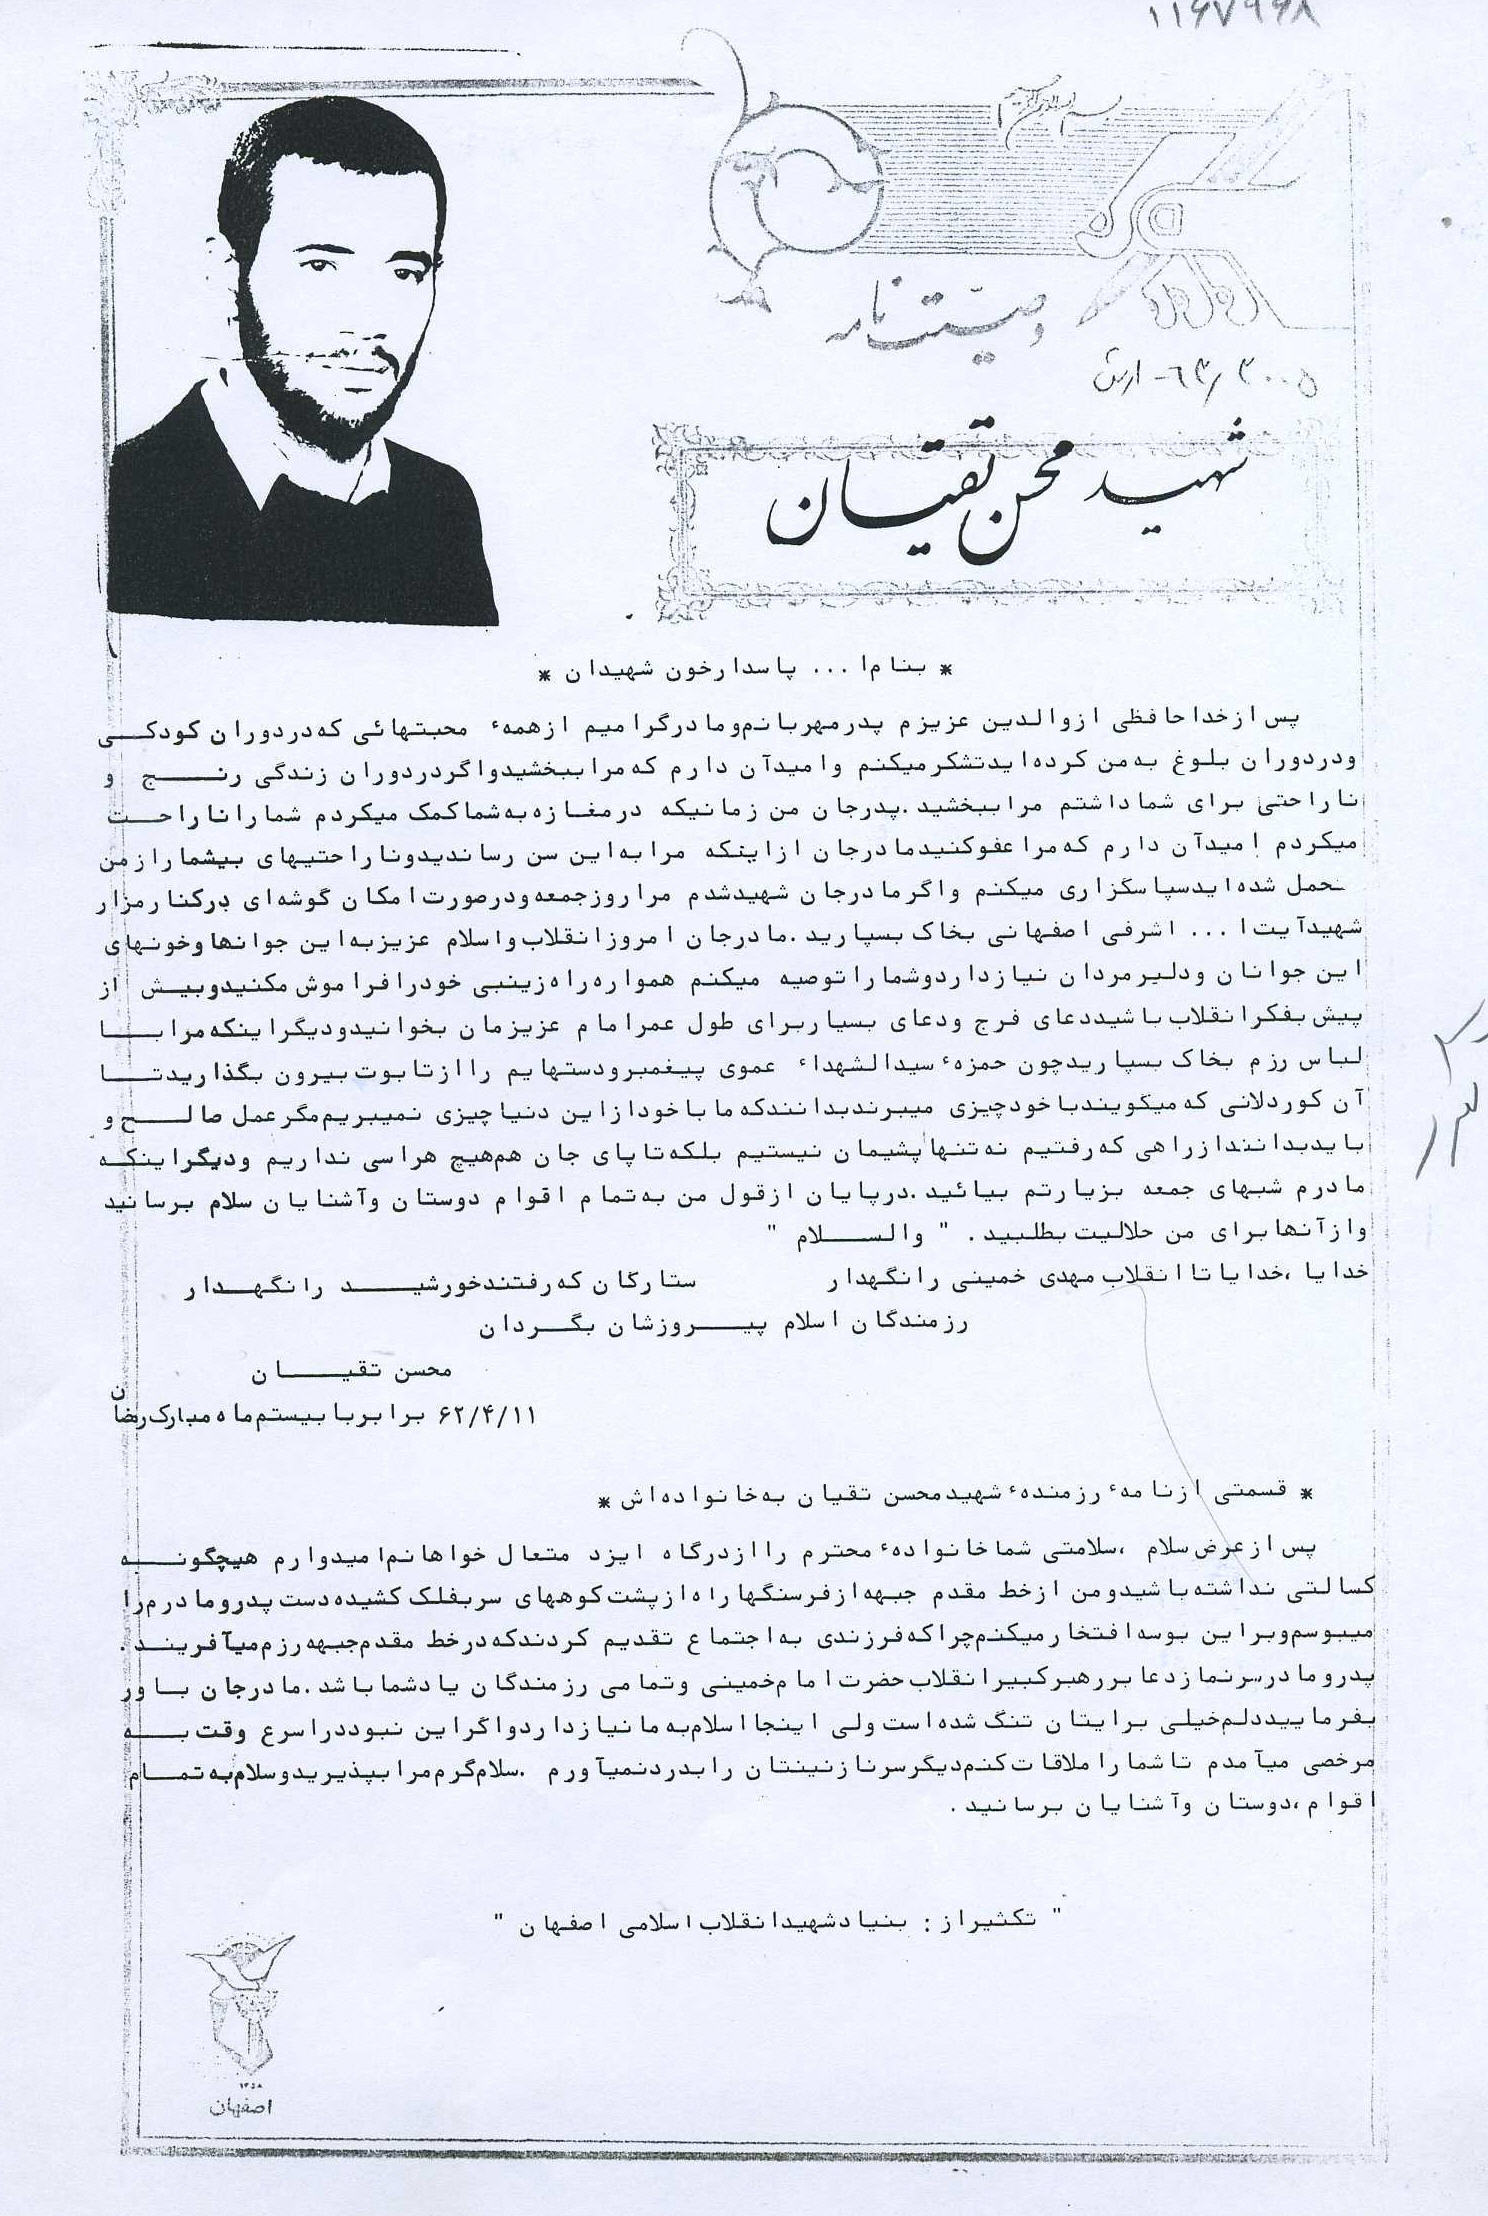 ۱۱۶۷۹۶۸
بسم الله الرحمن الرحیم
وصیّت نامه
شهید محسن تقیان
* بنام ا... پاسدار خون شهیدان *
پس از خداحافظی از والدین عزیزم پدر مهربانم و مادر گرامیم از همهٔ محبتهائی که در دوران کودکی
و در دوران بلوغ به من کرده اید تشکر میکنم و امید آن دارم که مرا ببخشید و اگر در دوران زندگی رنج و
ناراحتی برای شما داشتم مرا ببخشید. پدر جان من زمانیکه در مغازه به شما کمک میکردم شما را ناراحت
میکردم امید آن دارم که مرا عفو کنید مادر جان از اینکه مرا به این سن رساندید و ناراحتیهای بیشمار از من
تحمل شده اید سپاسگزاری میکنم و اگر مادر جان شهید شدم مرا روز جمعه و در صورت امکان گوشه ای در کنار مزار
شهید آیت ا... اشرفی اصفهانی بخاک بسپارید. مادر جان امروز انقلاب و اسلام عزیز به این جوانها و خونهای
این جوانان و دلیر مردان نیاز دارد و شما را توصیه میکنم همواره راه زینبی خود را فراموش مکنید و بیش از
پیش بفکر انقلاب باشید دعای فرج و دعای بسیار برای طول عمر امام عزیزمان بخوانید و دیگر اینکه مرا با
لباس رزم بخاک بسپارید چون حمزهٔ سیدالشهداء عموی پیغمبر و دستهایم را از تابوت بیرون بگذارید تا
آن کوردلانی که میگویند با خود چیزی میبرند بدانند که ما با خود از این دنیا چیزی نمیبریم مگر عمل صالح و
باید بدانند از راهی که رفتیم نه تنها پشیمان نیستیم بلکه تا پای جان هم هیچ هراسی نداریم و دیگر اینکه
مادرم شبهای جمعه بزیارتم بیائید. در پایان از قول من به تمام اقوام دوستان و آشنایان سلام برسانید
و از آنها برای من حلالیت بطلبید. " والسلام "
خدایا، خدایا تا انقلاب مهدی خمینی را نگهدار ستارگان که رفتند خورشید را نگهدار
رزمندگان اسلام پیروزشان بگردان
محسن تقیان
۶۲/۴/۱۱ برابر با بیستم ماه مبارک رمضان
* قسمتی از نامهٔ رزمندهٔ شهید محسن تقیان به خانواده اش *
پس از عرض سلام، سلامتی شما خانوادهٔ محترم را از درگاه ایزد متعال خواهانم امیدوارم هیچگونه
کسالتی نداشته باشید و من از خط مقدم جبهه از فرسنگها راه از پشت کوههای سر بفلک کشیده دست پدر و مادرم را
میبوسم و بر این بوسه افتخار میکنم چرا که فرزندی به اجتماع تقدیم کردند که در خط مقدم جبهه رزم میآفریند.
پدر و مادر سر نماز دعا بر رهبر کبیر انقلاب حضرت امام خمینی و تمامی رزمندگان یاد شما باشد. مادر جان باور
بفرمایید دلم خیلی برایتان تنگ شده است ولی اینجا اسلام به ما نیاز دارد و اگر این نبود در اسرع وقت به
مرخصی میآمدم تا شما را ملاقات کنم دیگر سر نازنینتان را بدرد نمیآورم. سلام گرم مرا بپذیرید و سلام به تمام
اقوام، دوستان و آشنایان برسانید.
" تکثیر از: بنیاد شهید انقلاب اسلامی اصفهان "
۱۳۵۸
اصفهان